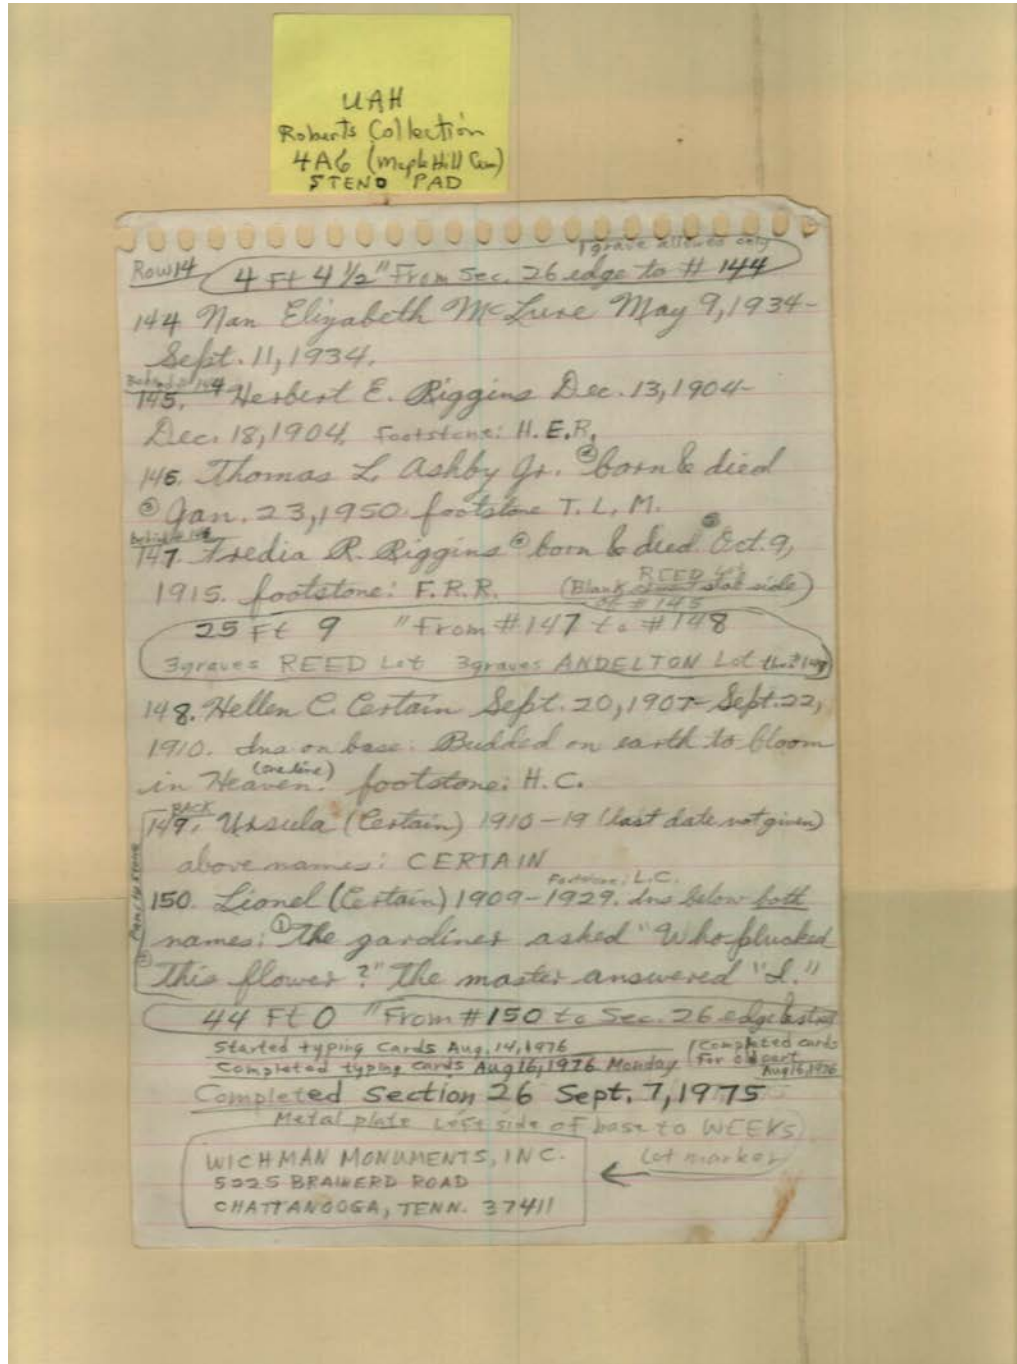 UAH
Roberts Collection
4A6 (Maple Hill Cem)
STENO PAD
1 grave allowed only
Row 14 4 Ft 4 1/2" From Sec. 26 edge to # 144
144 Nan Elizabeth McLure May 9, 1934-
Sept. 11, 1934.
Behind # 144
145. Herbert E. Riggins Dec. 13, 1904-
Dec. 18, 1904. Footstone: H.E.R.
146. Thomas L. Ashby Jr. born & died
Jan. 23, 1950 footstone T. L. M.
behind # 146
147. Fredia R. Riggins born & died Oct. 9,
REED
1915. footstone: F.R.R. (Blank slab side)
of # 145
25 Ft 9 " From #147 to #148
3 graves REED Lot 3 graves ANDELTON Lot
148. Hellen C. Certain Sept. 20, 1907- Sept. 22,
1910. Ins on base: Budded on earth to bloom
in Heaven. (one line) footstone: H.C.
BACK
149. Ursula (Certain) 1910-19 (last date not given)
above names: CERTAIN
Footstone: L.C.
150. Lionel (Certain) 1909-1929. Ins below both
names: ① The gardiner asked "Who plucked
② This flower?" The master answered "I."
Family Stone
44 Ft 0 " From #150 to Sec. 26 edge & street
Started typing cards Aug. 14, 1976
Completed typing cards Aug 16, 1976 Monday
Completed cards
For old part
Aug 16, 1976
Completed Section 26 Sept. 7, 1975
Metal plate left side of base to WEEKS
Lot marker
WICHMAN MONUMENTS, INC.
5225 BRAINERD ROAD
CHATTANOOGA, TENN. 37411